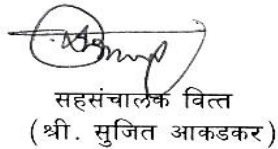 सहसंचालक वित्त
(श्री. सुजित आकडकर)